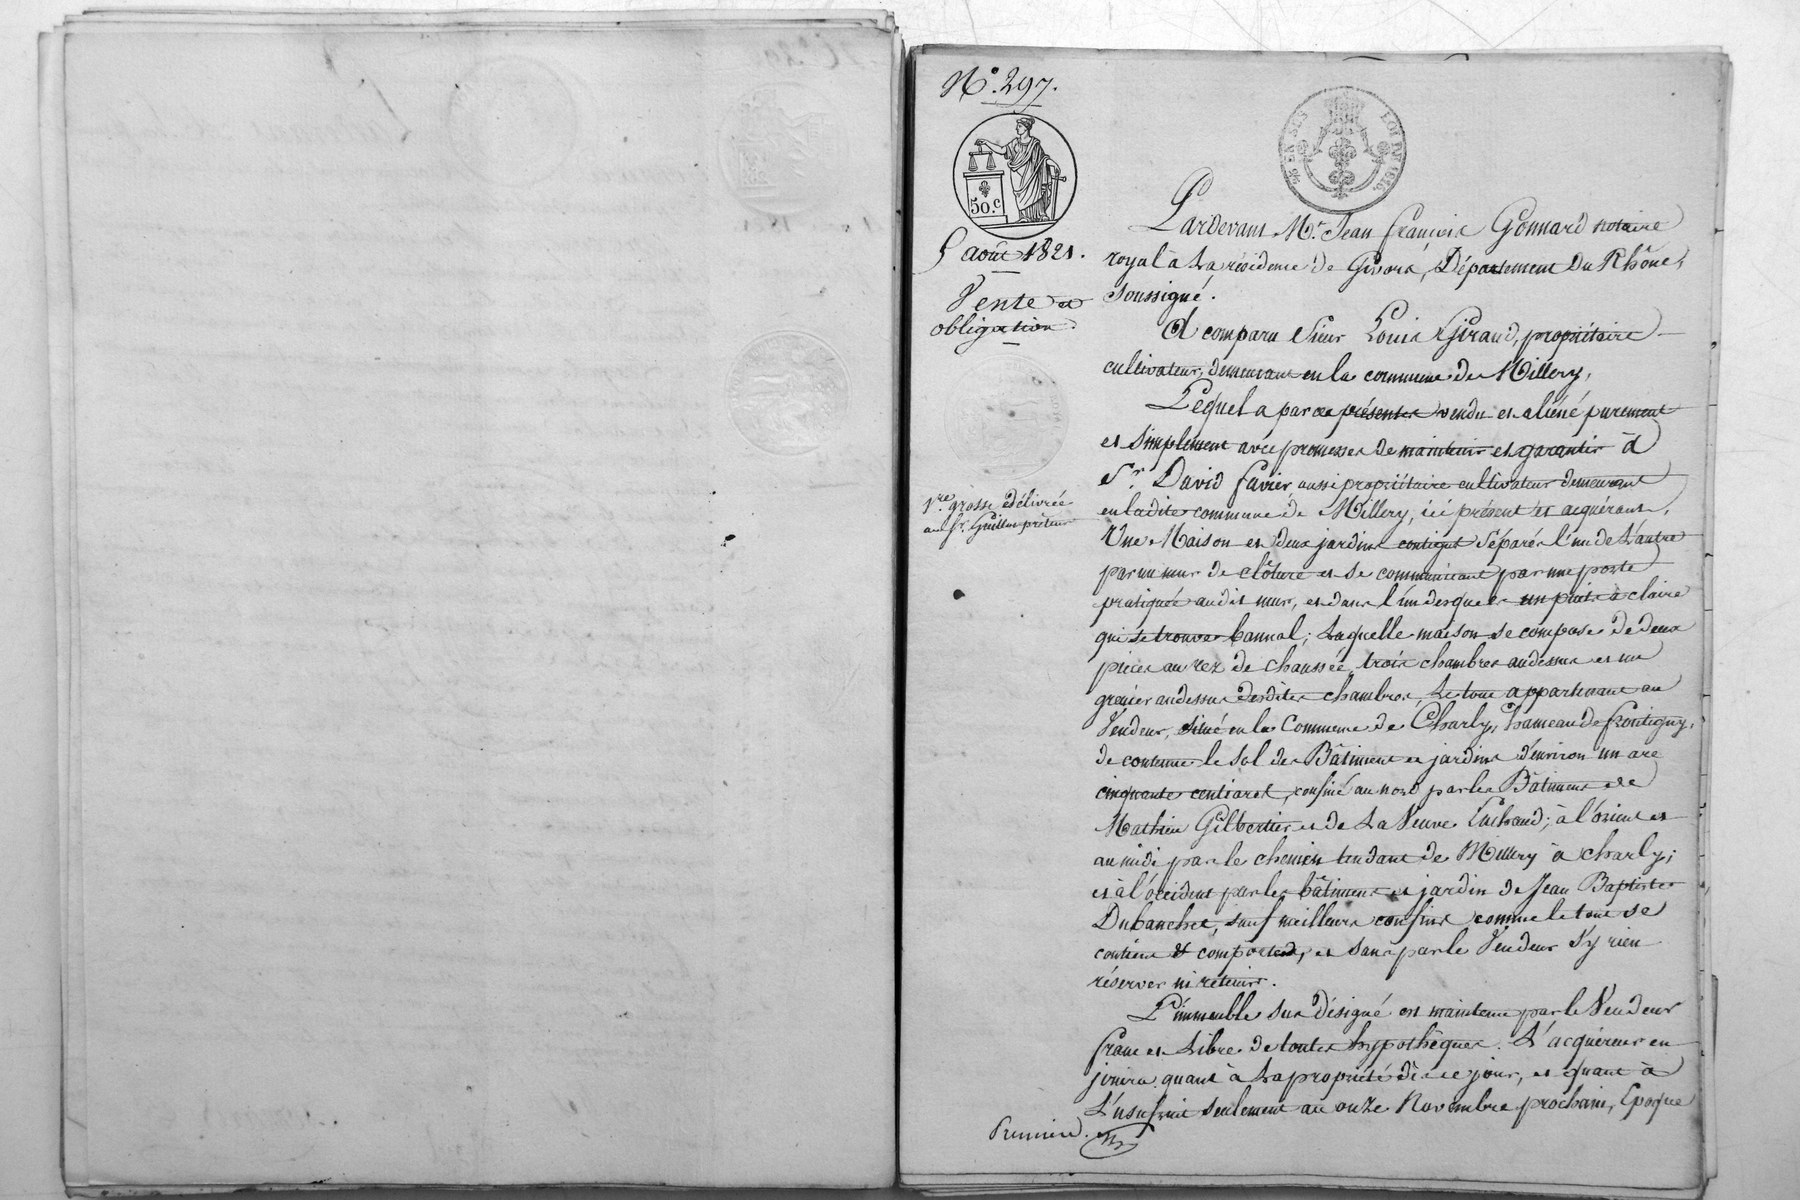 N.° 297.
50.c
LOI DE 1816.
5 août 1821.
Vente et
obligation.
1re grosse délivrée
au Sr. Guillot prêteur
Pardevant Me. Jean François Gonnard notaire
royal à la résidence de Givors, Département du Rhône,
soussigné.
A comparu Sieur Louis Giraud, propriétaire
cultivateur, demeurant en la commune de Millery,
Lequel a par ces présentes vendu et aliéné purement
et simplement avec promesses de maintenir et garantir à
Sr. David favier aussi propriétaire cultivateur demeurant
en ladite commune de Millery, ici présent et acquérant,
Une Maison et deux jardins contigus séparés l'un de l'autre
par un mur de clôture et se communiquant par une porte
pratiquée audit mur, et dans l'un desquels un puits à claire
qui se trouve bannal; Laquelle maison se compose de deux
pièces au rez de chaussée, trois chambres audessus et un
grenier audessus desdites chambres, Le tout appartenant au
Vendeur, situé en la Commune de Charly, hameau de frontigny,
de contenue le sol des Bâtiment et jardins d'environ un are
cinquante centiares, confiné au nord par les Bâtiment de
Mathieu Gilbertier et de La Veuve; à l'orient et
au midi par le chemin tendant de Millery à charly;
et à l'occident par les bâtiment et jardin de Jean Baptiste
Dubanchet, sauf meilleurs confins comme le tout se
contient & comporte, et sans par le Vendeur s'y rien
réserver ni retenir.
L'immeuble sus désigné est maintenu par le Vendeur
franc et Libre de toutes hypothèques. L'acquéreur en
jouira quant à La propriété dès ce jour, et quant à
L'usufruit seulement au onze Novembre prochain, Epoque
Première.